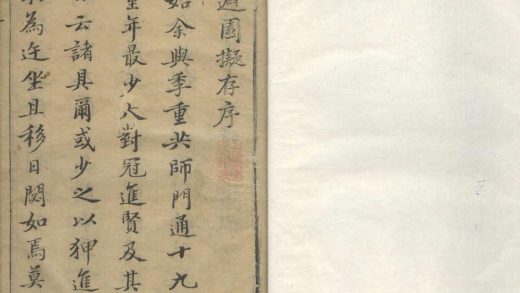 避園擬存序
始余與季重共師門通十九
年最少人對冠進賢及其
云諸具爾或少之以狎進
為迕坐且移日閱如焉莫